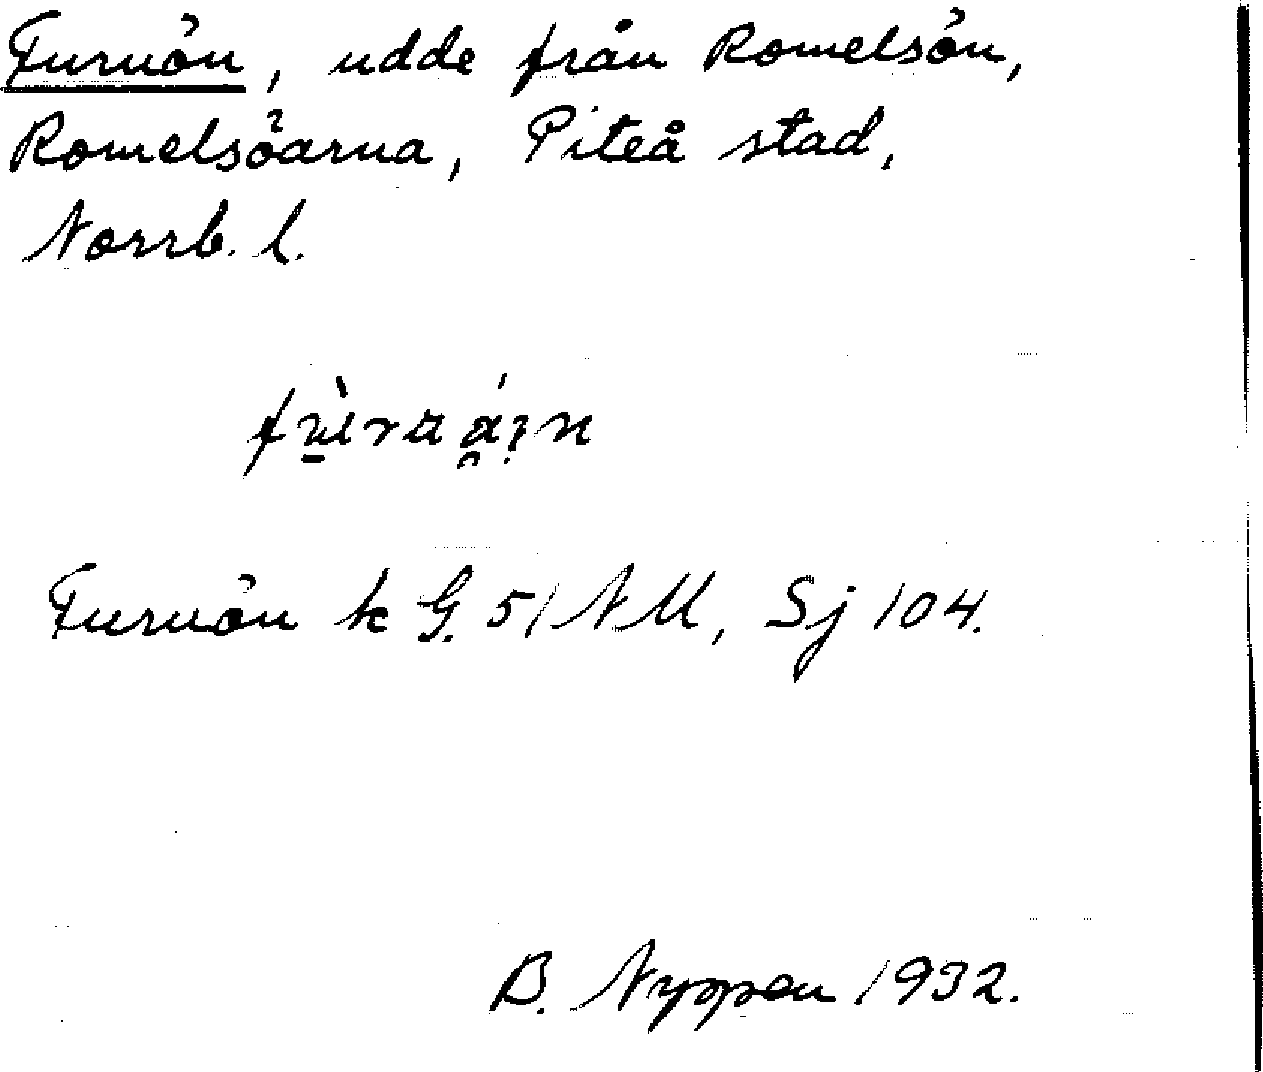 Furuön, udde från Romelsön,
Romelsöarna, Piteå stad,
Norrb. l.
Furuön k G. 51 NM, Sj 104.
B. Nyppen 1932.